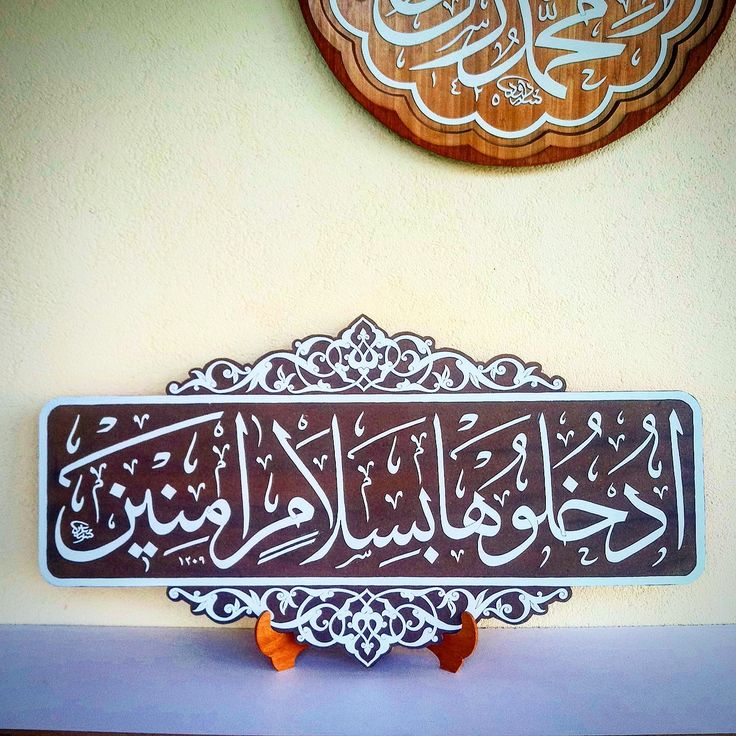 محمد رسول
ادخلوها بسلام امنين
١٢٠٩